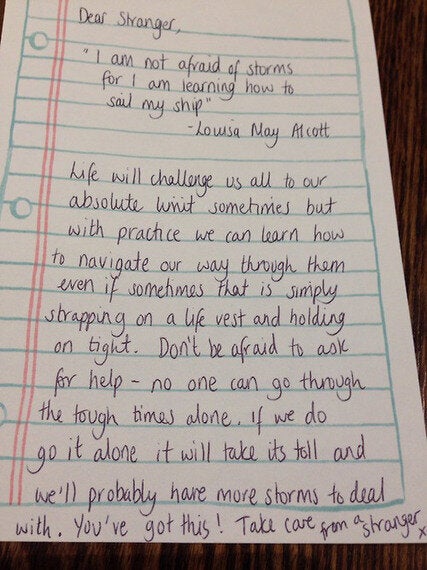 Dear Stranger,
"I am not afraid of storms
for I am learning how to
sail my ship"
-Louisa May Alcott
Life will challenge us all to our
absolute limit sometimes but
with practice we can learn how
to navigate our way through them
even if sometimes that is simply
strapping on a life vest and holding
on tight. Don't be afraid to ask
for help - no one can go through
the tough times alone. If we do
go it alone it will take its toll and
we'll probably have more storms to deal
with. You've got this! Take care from a stranger x